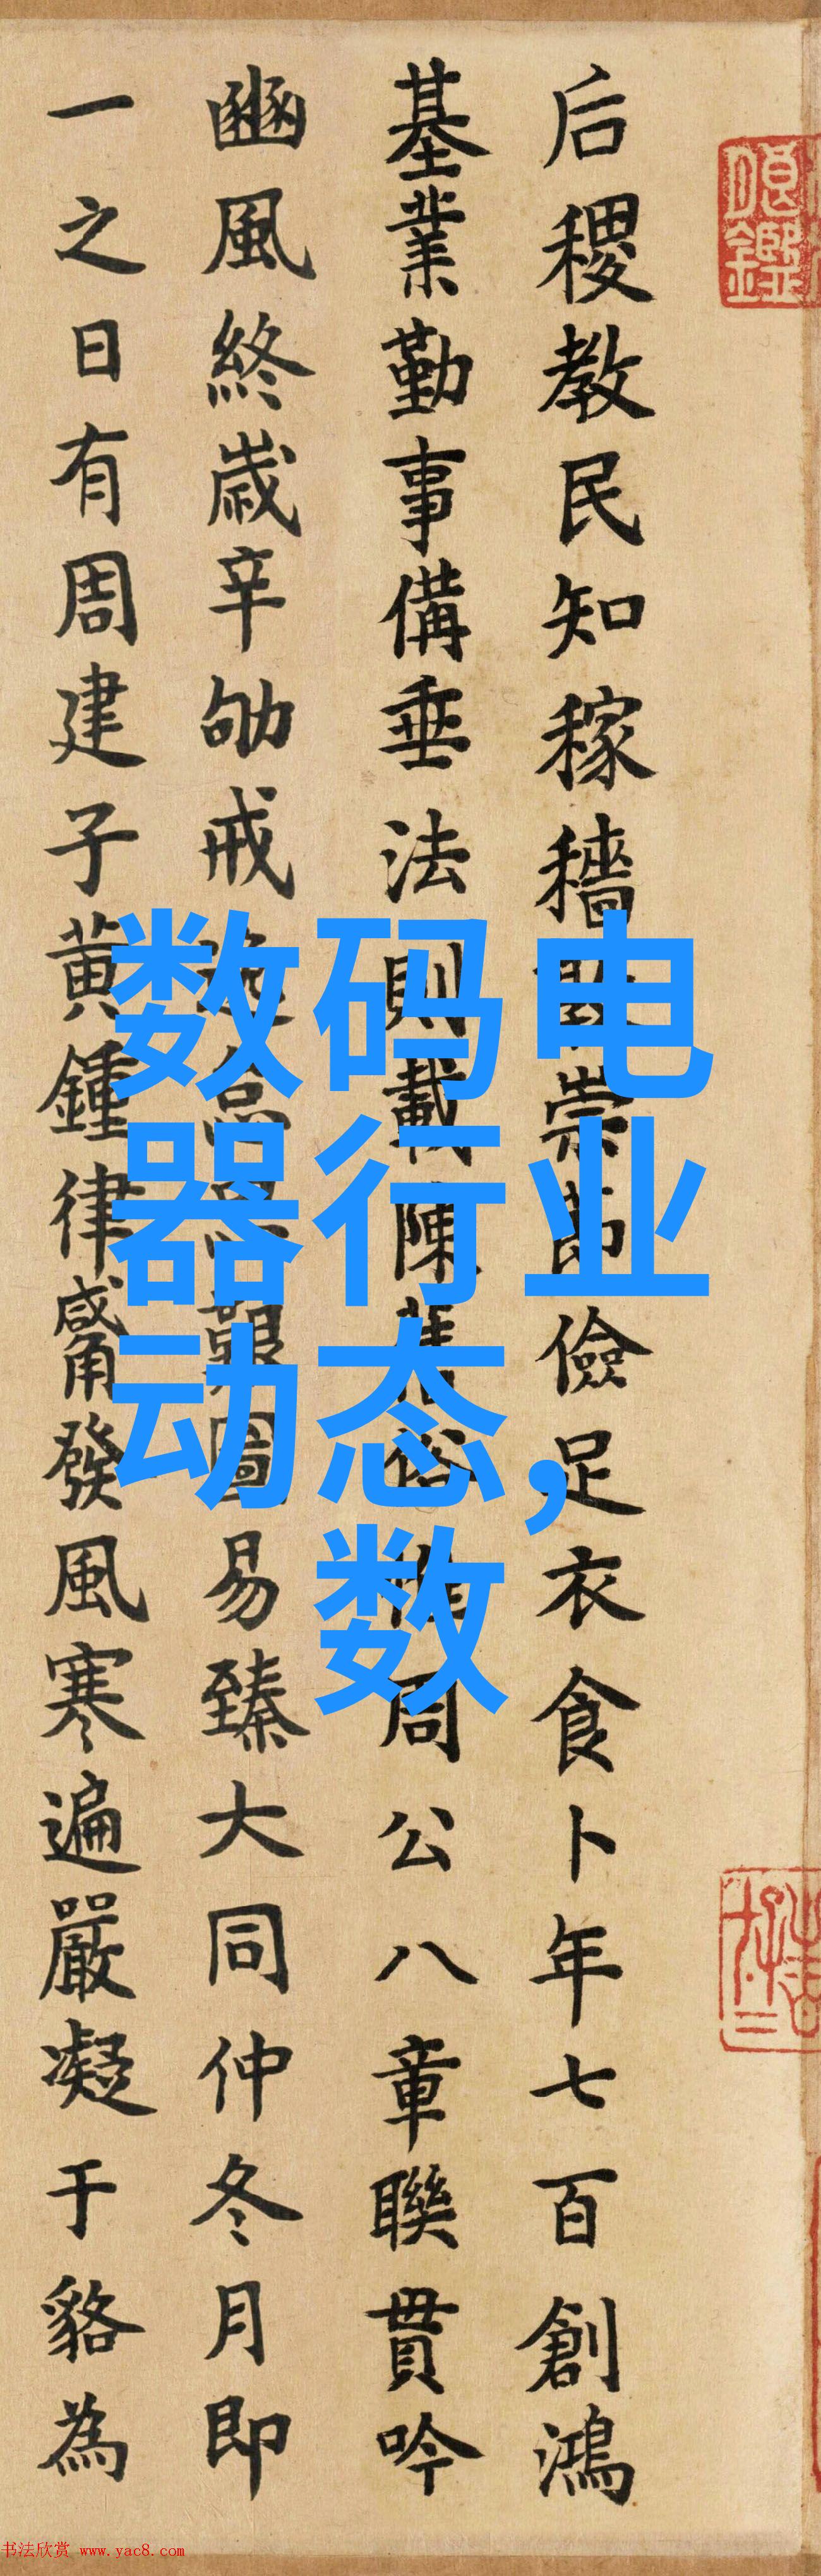 后稷教民知稼穡崇節儉足衣食卜年七百創鴻
基業勤事備垂法則載陳舊俗惟周公八章聯貫吟
豳風終歲辛劬戒艱圖易臻大同仲冬月即
一之日有周建子黃鍾律觱發風寒遍嚴凝于貉為
数码电
器行业
动态,
数
书法欣赏 www.yac8.com